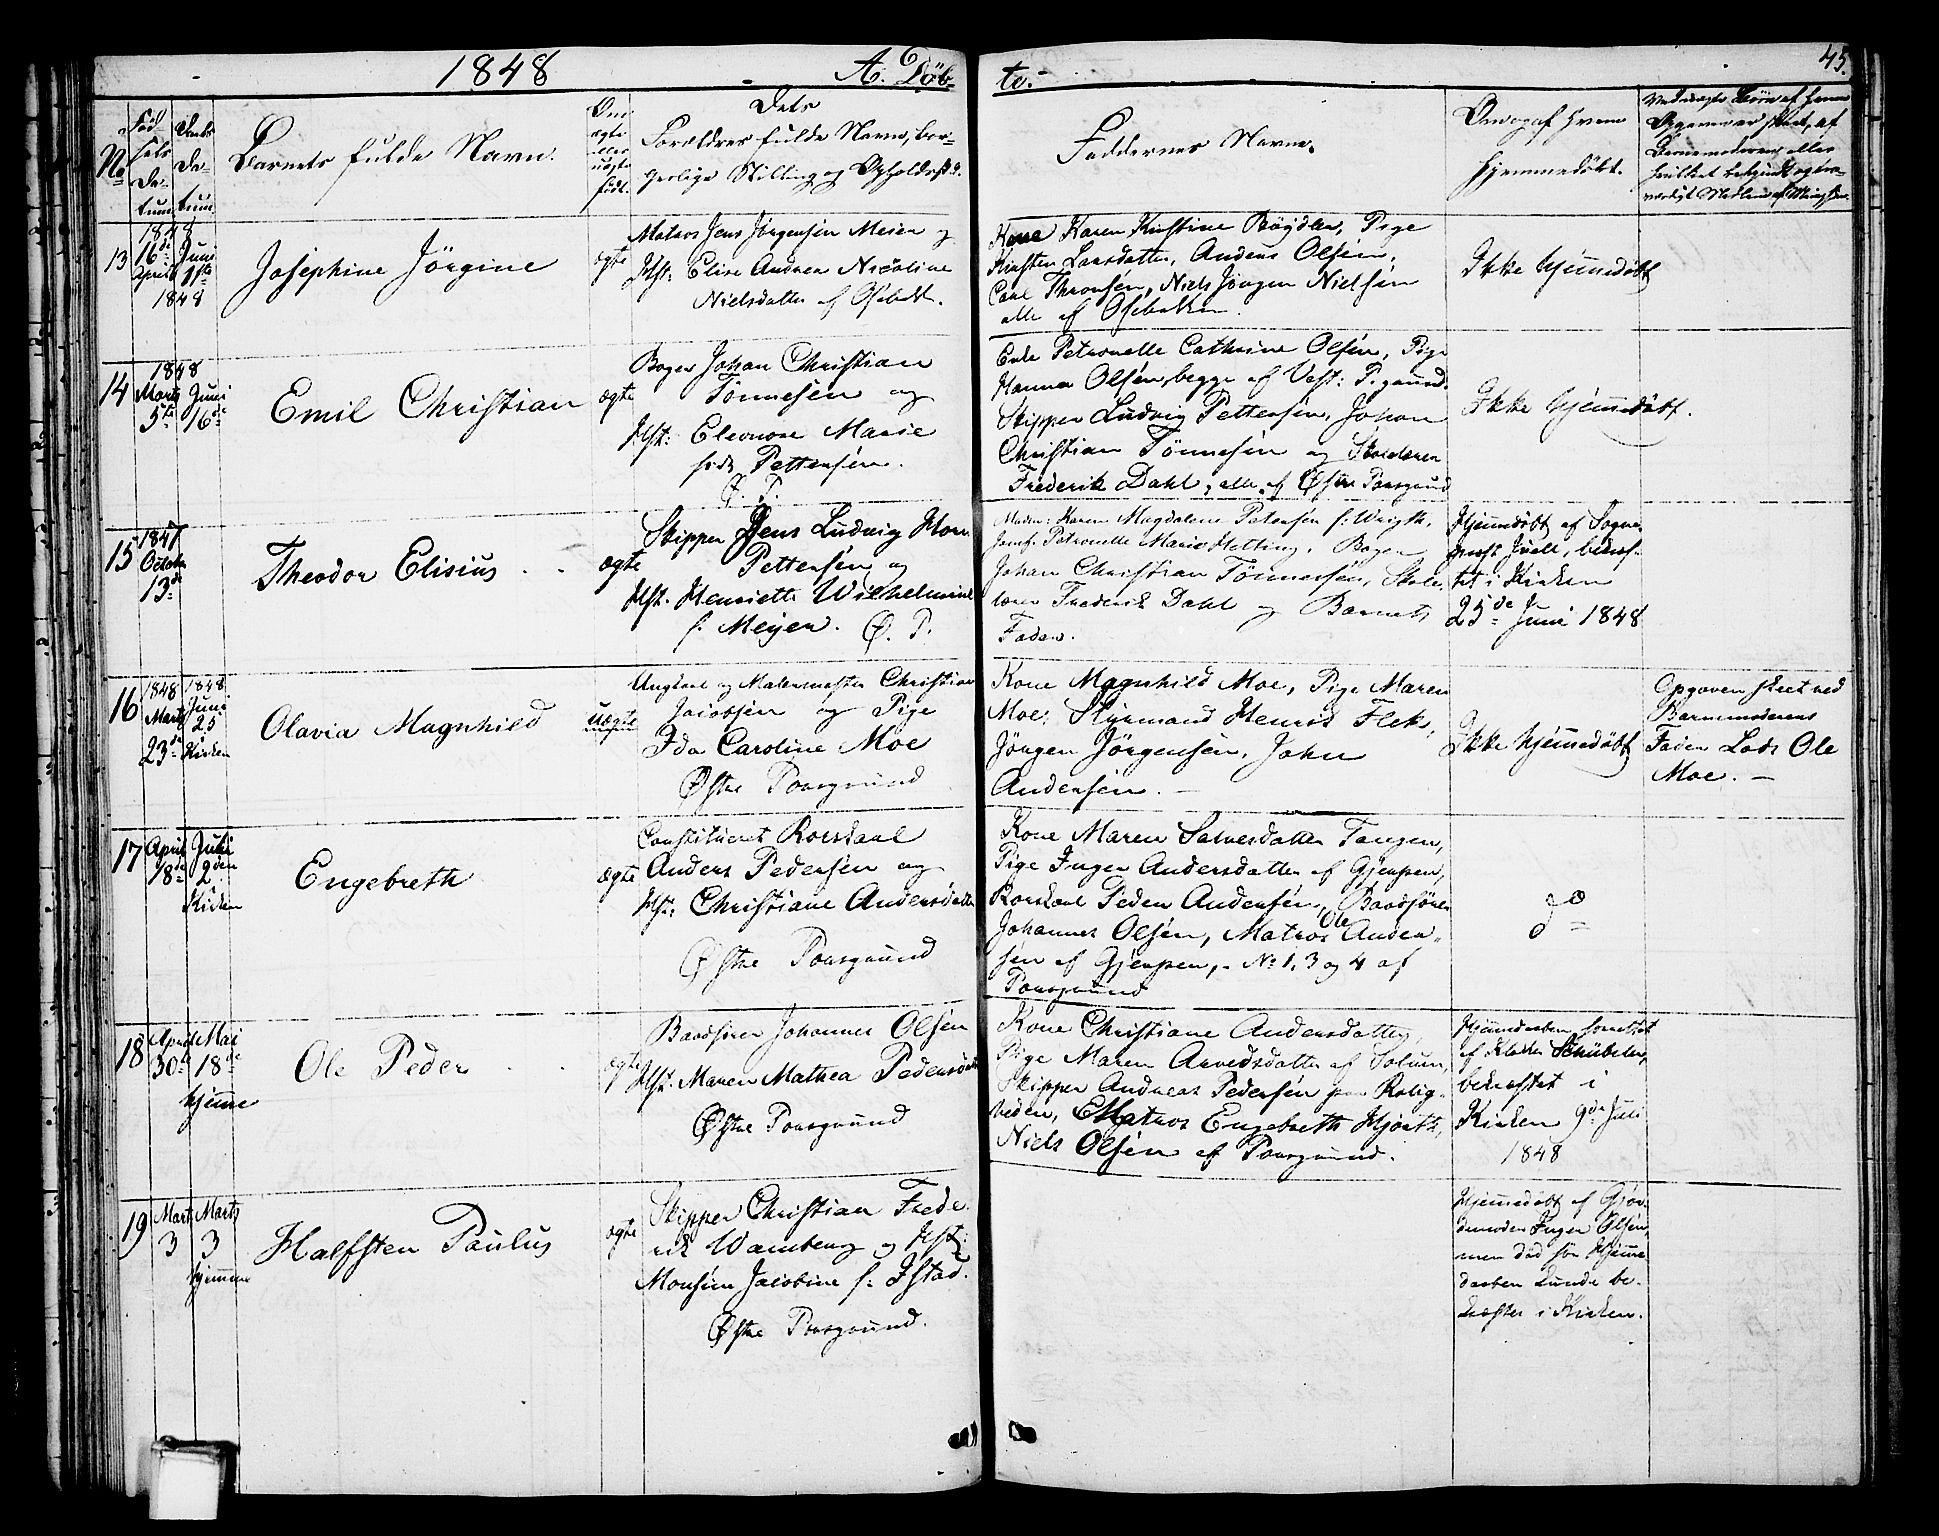 1848 A. Döb-
te.
45.
No
Fød
sels
Da-
tum
Daabs
Da-
tum.
Barnets fulde Navn.
Om
ægte
eller
uægte
født.
Dets
Forældres fulde Navn, bor-
gerlige Stilling og Opholdsst.
Faddernes Navne.
Om og af hvem
hjemmedöbt.
Ved uægte Börn af hvem
Opgaven er skeet, af
Barnemoderen eller
13
1848
16de
April
1848
Juni
11te
Josephine Jörgine
ægte
Matros Jens Jörgensen Meier og
Hst: Elise Andrea Nicoline
Nielsdatter af Osebakk.
Kone Karen Kirstine Böydler, Pige
Kirsten Larsdatter, Anders Olsén,
Carl Thronsén, Niels Jörgen Nielsén
alle af Osebakken.
Ikke hjemmedöbt
14
1848
Marts
5te
Juni
16de
Emil Christian
ægte
Bager Johan Christian
Tönnesén og
Hst: Eleonore Marie
född Pettersén.
Ø. P.
Enke Petronelle Cathrine Olsén, Pige
Hanna Olsén, begge af Vest: Pgrund.
Skipper Ludvig Pettersén, Johan
Christian Tönnesén og Skolelærer
Frederik Dahl, alle af Østre Porsgrund
Ikke hjemmedöbt.
15
1847
October
13de
Theodor Elisius
ægte
Skipper Jens Ludvig Horn
Pettersén og
Hst. Henriette Wilhelmine
f: Meyer. Ø. P.
Madm: Karen Magdalene Petersén f: Wrigth,
Jomf. Petronelle Marie Hetting, Bager
Johan Christian Tönnesén, Skole-
lærer Frederik Dahl og Barnets
Fader.
Hjemmedöbt af Sogne-
præst Juell, bekræf-
tet i Kirken
25de Juni 1848
16
1848
Marts
23de
1848
Juni
25
i
Kirken
Olavia Magnhild
uægte
Ungkarl og Malermester Christian
Jacobsén og Pige
Ida Caroline Moe
Østre Porsgrund
Kone Magnhild Moe, Pige Maren
Moe, Styrmand Henrik Flek,
Jörgen Jörgensén, John
Andersén.
Ikke hjemmedöbt
Opgaven skeet ved
Barnemoderens
Fader Lods Ole
Moe.
17
April
18de
Juli
2den
i
Kirken
Engebreth
ægte
Constitueret Rorskarl
Anders Pedersén og
Hst: Christiane Andersdatter
Østre Porsgrund
Kone Maren Salvesdatter Tangen,
Pige Inger Andersdatter af Gjerpen,
Rorskarl Peder Andersén, Baadförer
Johannes Olsén, Matros Ole Ander-
sén af Gjerpen, No 1, 3 og 4 af
Porsgrund
do
18
April
30de
Mai
18de
hjemme
Ole Peder
ægte
Baadförer Johannes Olsén
Hst: Maren Mathea Pedersdatter
Østre Porsgrund
Kone Christiane Andersdatter,
Pige Maren Arvedsdatter af Solum,
Skipper Andreas Pedersén paa Rolig-
heden, Matros Engebreth Hjorth,
Niels Olsén af Porsgrund.
Hjemmedaaben forrettet
af Klokker Schübeler,
bekræftet i
Kirken 9de Juli
1848
19
Marts
3
Marts
3
hjemme
Halfsten Paulus
ægte
Skipper Christian Frede-
rik Wamberg og Hst:
Monsine Jacobine f: Ifstad.
Østre Porsgrund.
Hjemmedöbt af Gjor-
demoder Inger Olsén,
men död för Hjemme-
daaben kunde be-
kræftes i Kirken.